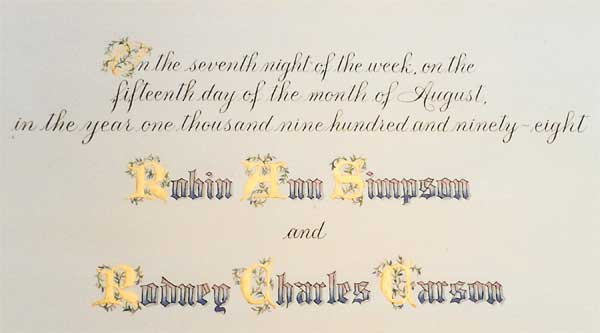 On the seventh night of the week, on the
fifteenth day of the month of August,
in the year one thousand nine hundred and ninety-eight
Robin Ann Simpson
and
Rodney Charles Carson